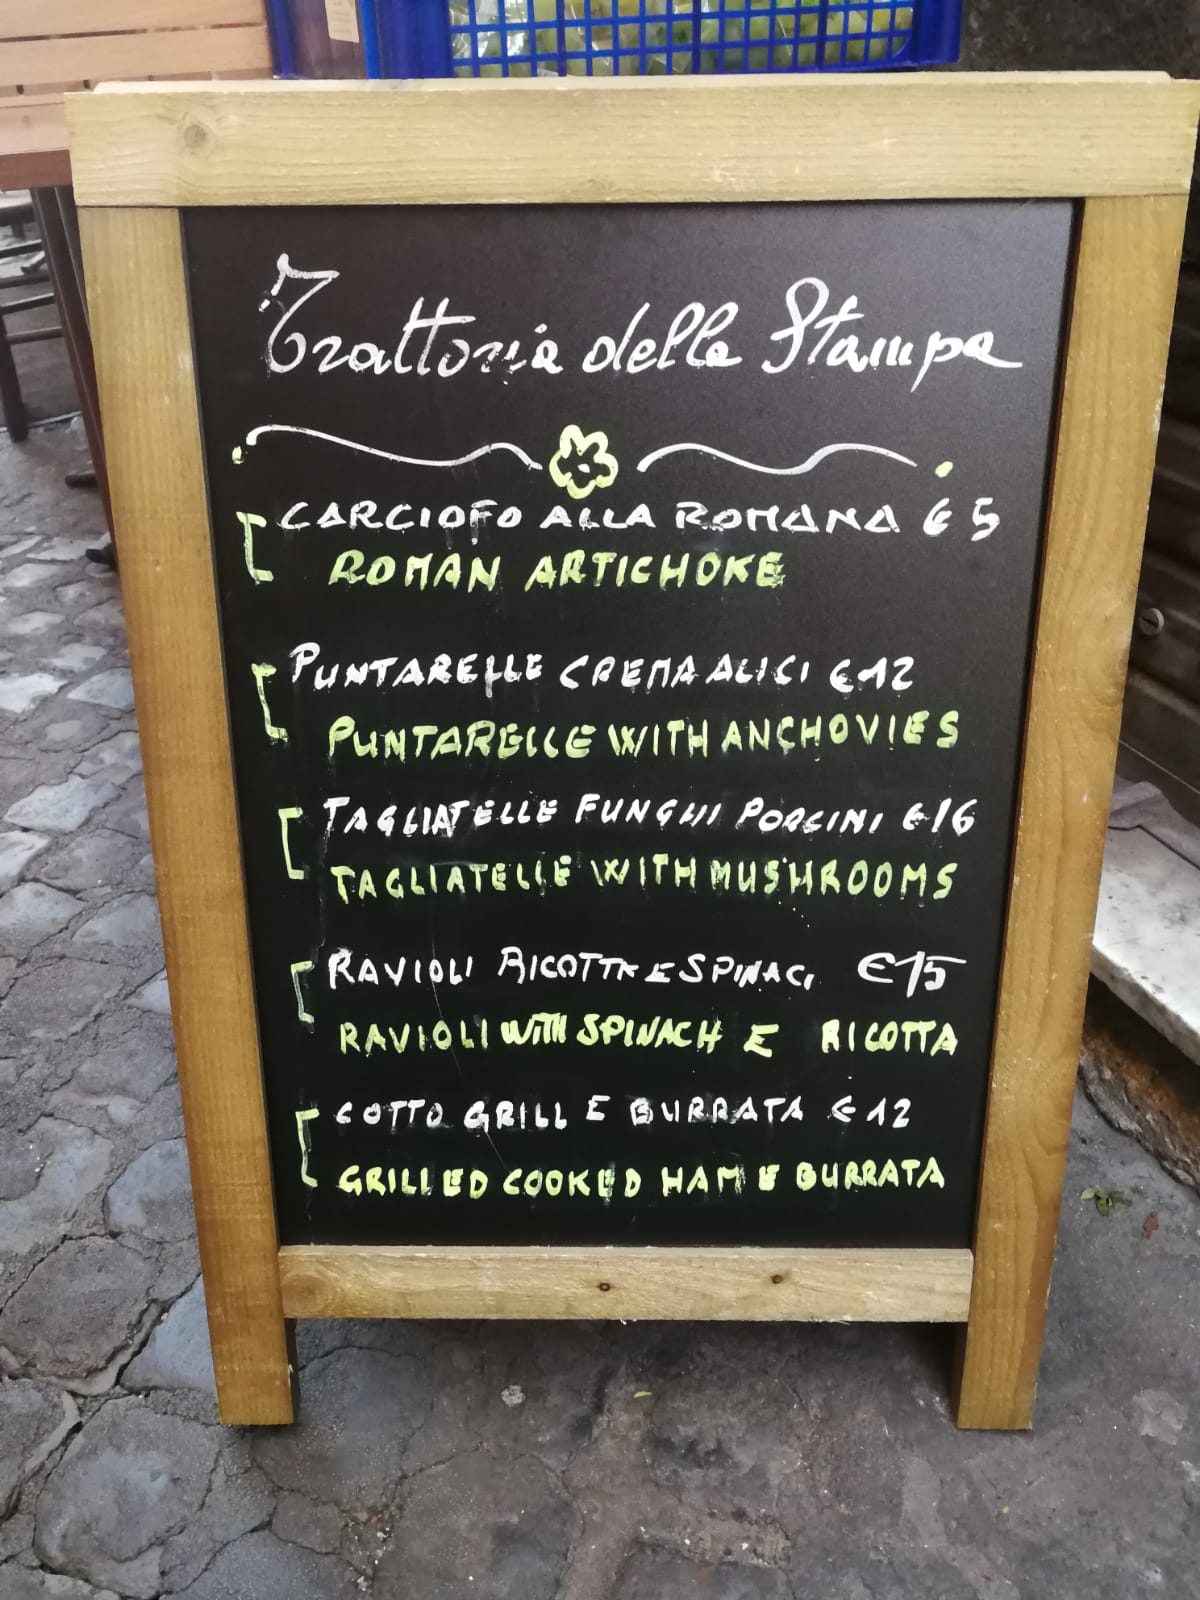 Trattoria della Stampa
CARCIOFO ALLA ROMANA €5
ROMAN ARTICHOKE
PUNTARELLE CREMA ALICI €12
PUNTARELLE WITH ANCHOVIES
TAGLIATELLE FUNGHI PORCINI €16
TAGLIATELLE WITH MUSHROOMS
RAVIOLI RICOTTA E SPINACI €15
RAVIOLI WITH SPINACH E RICOTTA
COTTO GRILL E BURRATA €12
GRILLED COOKED HAM E BURRATA